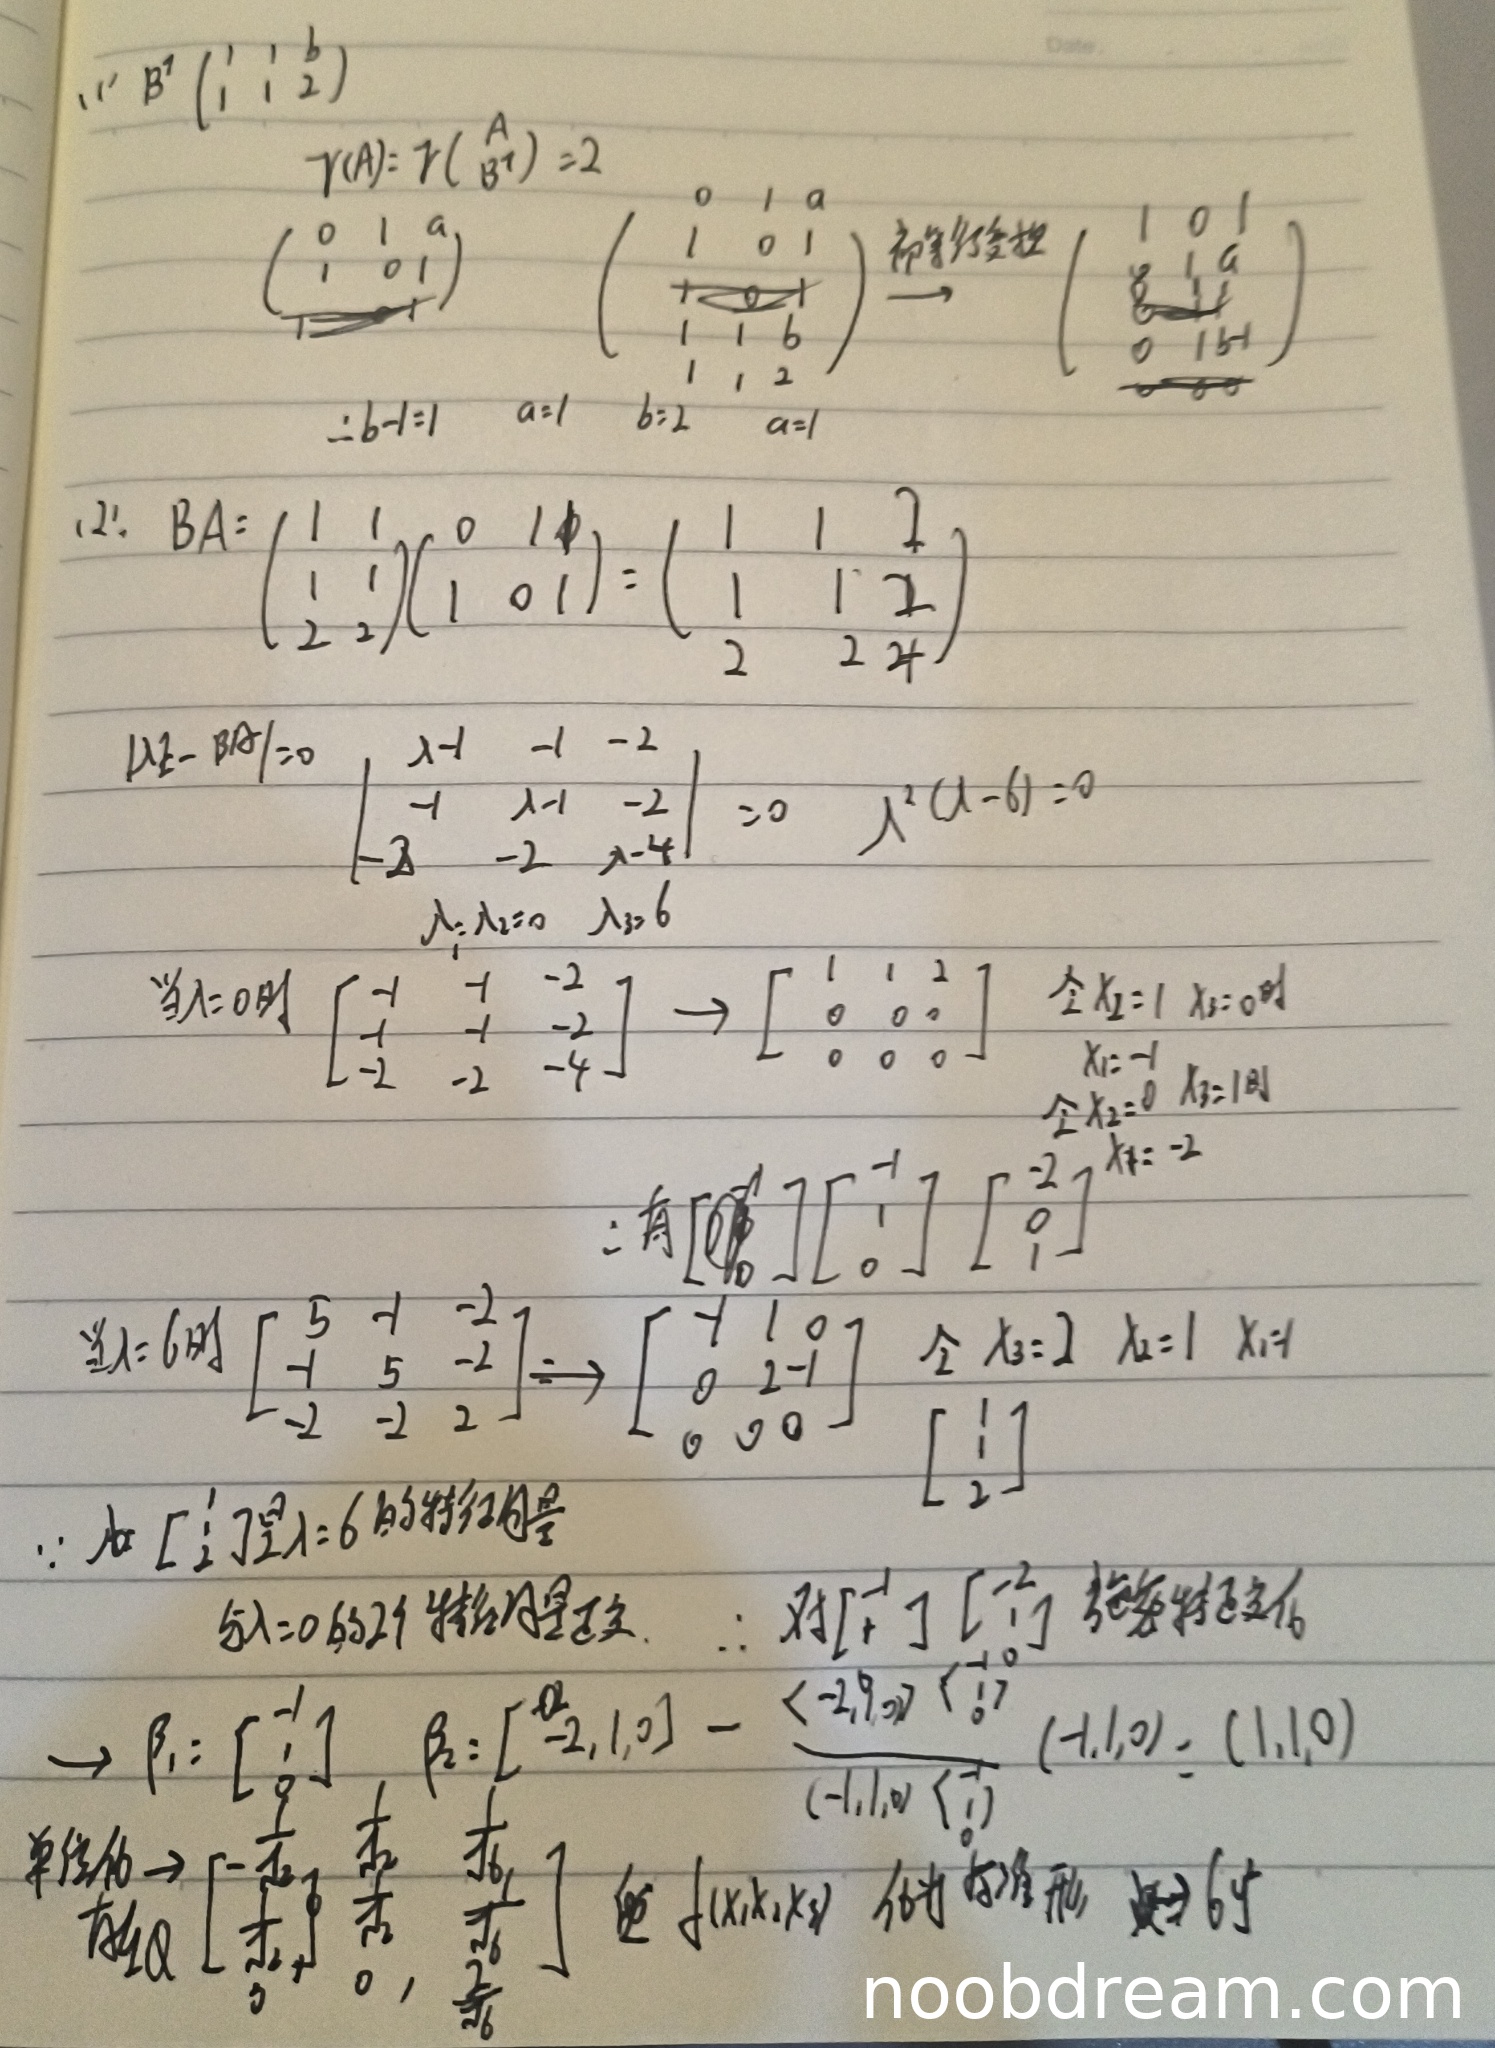 Date:
(1) Bᵀ (1 1 b
1 1 2)
r(A)=r(A
Bᵀ)=2
(0 1 a
1 0 1)
(0 1 a
1 0 1
1 1 b
1 1 2)
初等行变换 →
(1 0 1
0 1 a
0 1 b-1)
∴b-1=1 a=1 b=2 a=1
(2) BA=(1 1
1 1
2 2)(0 1 1
1 0 1)=(1 1 2
1 1 2
2 2 4)
|λE-BA|=0
|λ-1 -1 -2
-1 λ-1 -2
-2 -2 λ-4| =0 λ²(λ-6)=0
λ₁=λ₂=0 λ₃=6
当λ=0时 [-1 -1 -2
-1 -1 -2
-2 -2 -4] → [1 1 2
0 0 0
0 0 0]
令x₂=1 x₃=0时
x₁=-1
令x₂=0 x₃=1时
x₁=-2
∴有 [-1
1
0] [-2
0
1]
当λ=6时 [5 -1 -2
-1 5 -2
-2 -2 2] → [-1 1 0
0 2 -1
0 0 0] 令 x₃=2 x₂=1 x₁=1
[1
1
2]
∵ [1
1
2]是λ=6的特征向量
与λ=0的2个特征向量正交. ∴对[-1
1] [-2
1
0] 施密特正交化
→ β₁=[-1
1
0] β₂=[-2,1,0] - <-2,1,0> <-1
1
0>
(-1,1,0) <-1
1
0> (-1,1,0) = (1,1,0)
单位化→
有Q [-1/√2 1/√2 1/√6
1/√2 1/√2 1/√6
0 0, 2/√6] 使 f(x₁x₂x₃) 化为标准形 → 6y²
noobdream.com